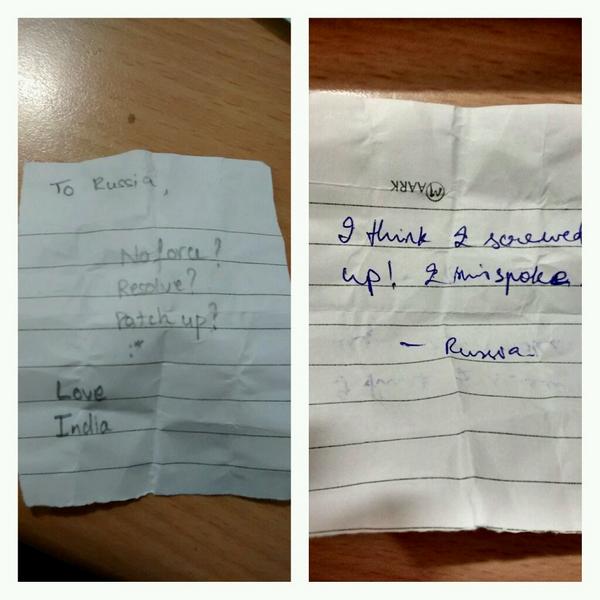 To Russia,
No force?
Resolve?
Patch up?
:*
Love
India
MAARK
I think I screwed
up! I misspoke.
- Russia.